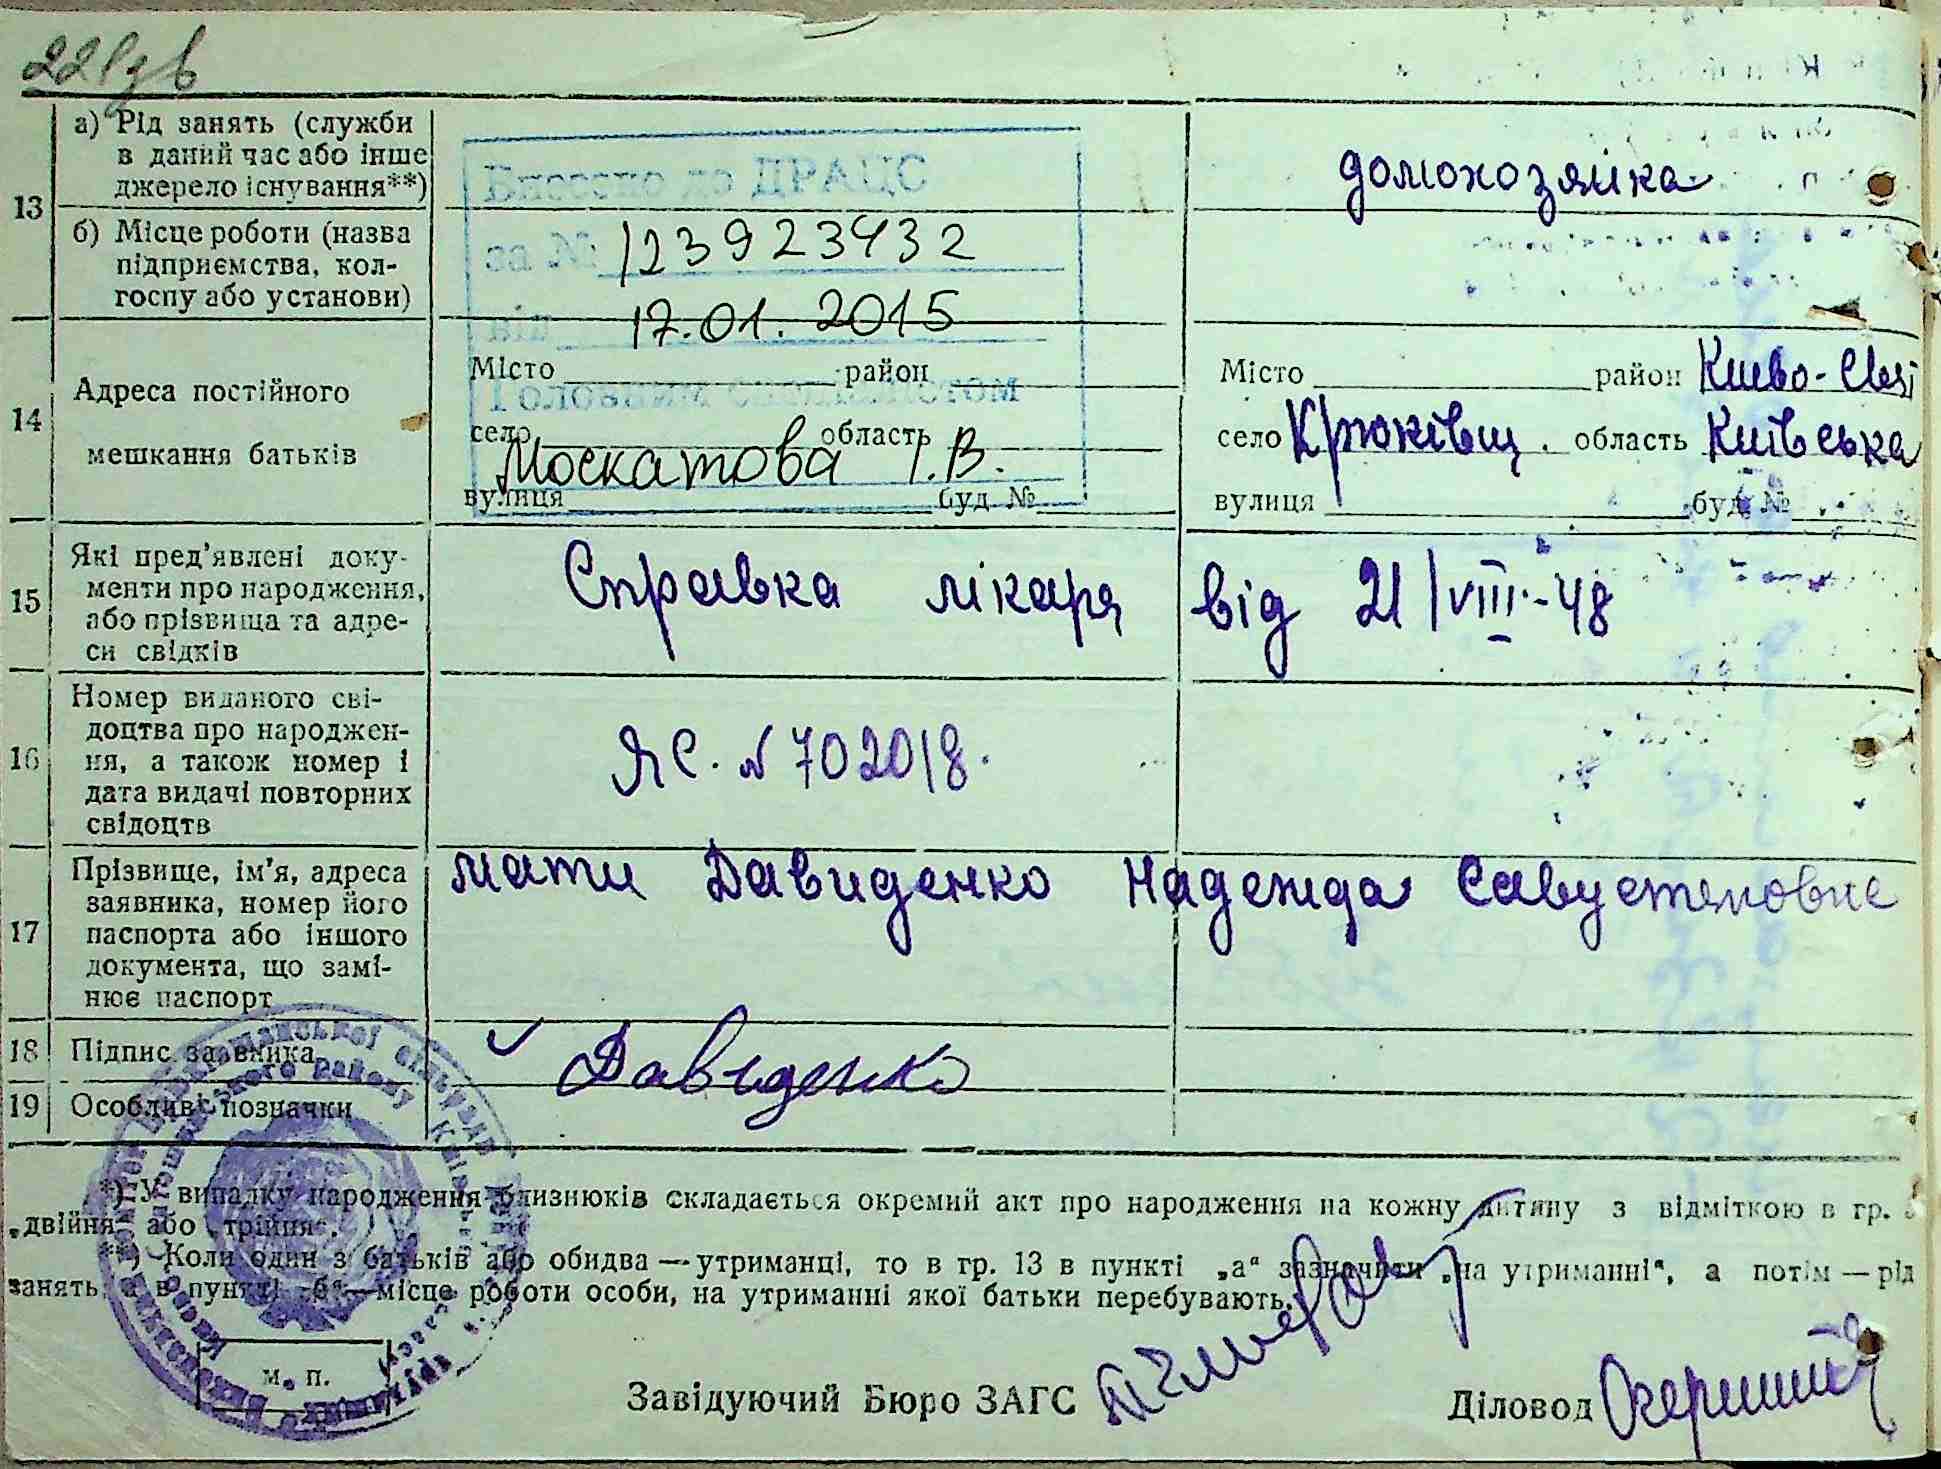 22 зв
13
а) Рід занять (служби
в даний час або інше
джерело існування**)
домохозяйка
б) Місце роботи (назва
підприємства, кол-
госпу або установи)
Внесено до ДРАЦС
за № 123923432
від 17.01.2015
Головним спеціалістом
Москатова Т.В.
14
Адреса постійного
мешкання батьків
Місто район
село область
вулиця буд №
Місто район Києво-Свят
село Крюківщ. область Київська
вулиця буд №
15
Які пред'явлені доку-
менти про народження,
або прізвища та адре-
си свідків
Справка лікаря від 21/VIII-48
16
Номер виданого сві-
доцтва про народжен-
ня, а також номер і
дата видачі повторних
свідоцтв
ЯС. № 702018.
17
Прізвище, ім'я, адреса
заявника, номер його
паспорта або іншого
документа, що замі-
нює паспорт
мати Давиденко Надежда
18
Підпис заявника
Давиденко
19
Особливі позначки
*) У випадку народження близнюків складається окремий акт про народження на кожну дитину з відміткою в гр.
„двійня" або „трійня".
**) Коли один з батьків або обидва — утриманці, то в гр. 13 в пункті „а" зазначити „на утриманні", а потім — рід
занять, а в пункті „б" — місце роботи особи, на утриманні якої батьки перебувають.
м. п.
Завідуючий Бюро ЗАГС
Діловод